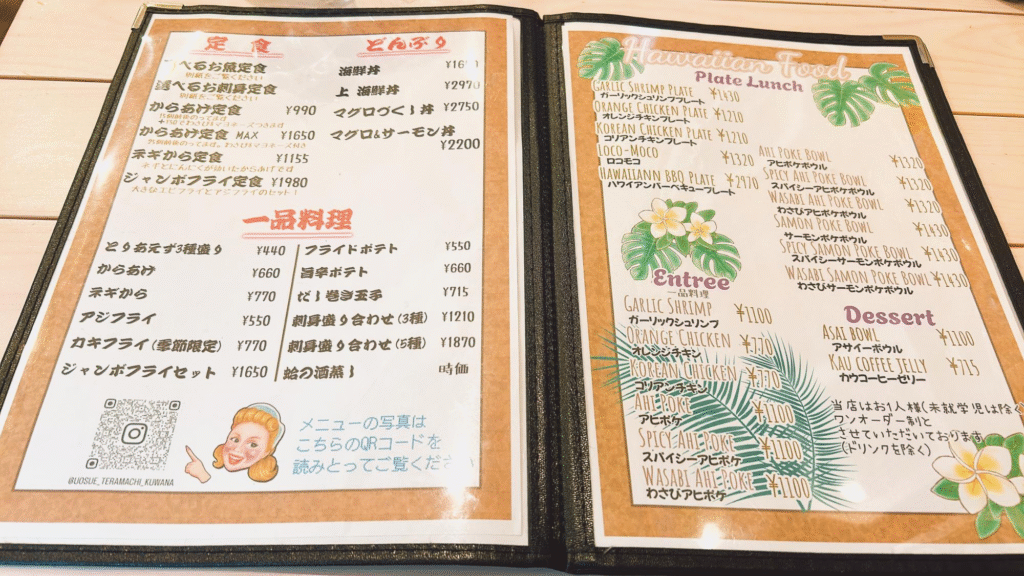 定食
べるお魚定食
別紙をご覧ください
選べるお刺身定食
別紙をご覧ください
からあげ定食 ¥990
からあげ定食 MAX ¥1650
ネギから定食 ¥1155
ジャンボフライ定食 ¥1980
大きなエビフライとアジフライのセット!
どんぶり
海鮮丼
上 海鮮丼 ¥2970
マグロづくし丼 ¥2750
マグロ&サーモン丼
¥2200
一品料理
とりあえず3種盛り ¥440
からあげ ¥660
ネギから ¥770
アジフライ ¥550
カキフライ(季節限定) ¥770
ジャンボフライセット ¥1650
フライドポテト ¥550
旨辛ポテト ¥660
だし巻き玉子 ¥715
刺身盛り合わせ(3種) ¥1210
刺身盛り合わせ(5種) ¥1870
蛤の酒蒸し 時価
@UOSUE_TERAMACHI_KUWANA
メニューの写真は
こちらのQRコードを
読みとってご覧ください
Hawaiian Food
Plate Lunch
Garlic Shrimp Plate ¥1430
ガーリックシュリンププレート
Orange Chicken Plate ¥1210
オレンジチキンプレート
Korean Chicken Plate ¥1210
コリアンチキンプレート
Loco-Moco ¥1320
ロコモコ
Hawaiiann BBQ Plate ¥2970
ハワイアンバーベキュープレート
Ahi Poke Bowl ¥1320
アヒポケボウル
Spicy Ahi Poke Bowl ¥1320
スパイシーアヒポケボウル
Wasabi Ahi Poke Bowl ¥1320
わさびアヒポケボウル
Samon Poke Bowl ¥1430
サーモンポケボウル
Spicy Samon Poke Bowl ¥1430
スパイシーサーモンポケボウル
Wasabi Samon Poke Bowl ¥1430
わさびサーモンポケボウル
Entree
一品料理
Garlic Shrimp ¥1100
ガーリックシュリンプ
Orange Chicken ¥770
オレンジチキン
Korean Chicken ¥770
コリアンチキン
Ahi Poke ¥1100
アヒポケ
Spicy Ahi Poke ¥1100
スパイシーアヒポケ
Wasabi Ahi Poke ¥1100
わさびアヒポケ
Dessert
Asai bowl ¥1100
アサイーボウル
Kau Coffee Jelly ¥715
カウコーヒーゼリー
当店はお1人様(未就学児は除く
ワンオーダー制と
させていただいております
(ドリンクを除く)